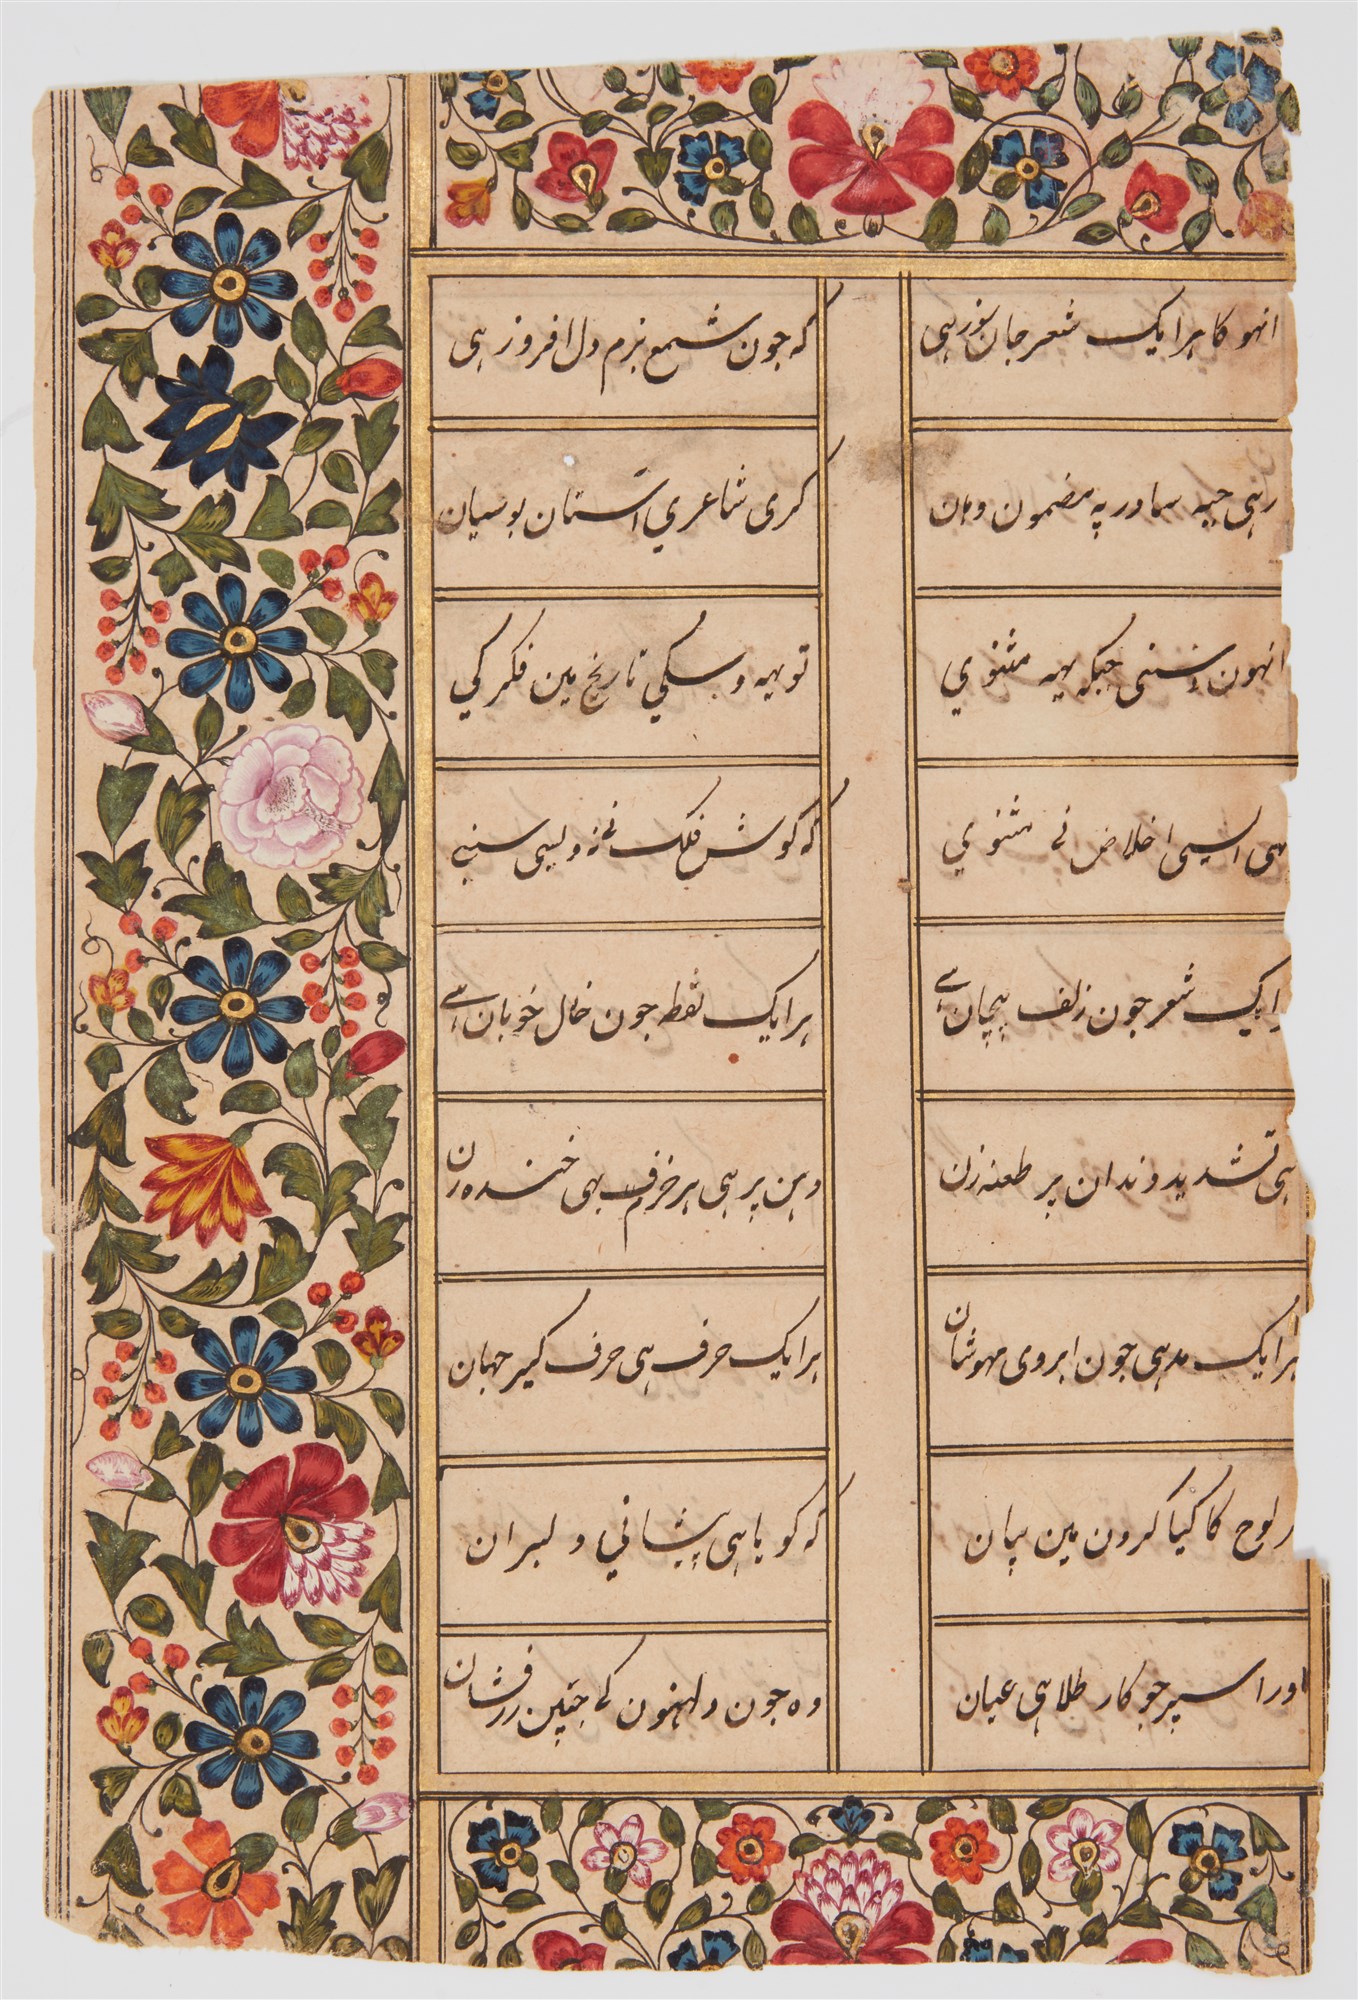 انہو کا ہر ایک شعر جان نور ہی
کہ جون شمع بزم دل افروز ہی
رہی جبہ سا در پہ مضمون وہان
کری شاعري آستان بوسیان
انہون نی سنی جبکہ یہہ مثنوي
تو یہہ وسکي تاریخ مین فکر کي
کہی ایسی اخلاص نے مثنوي
کہ گوش فلک نے نہ ویسی سنے
ایک شعر جون زلف پیچان ہے
ہر ایک نقطہ جون خال خوبان ہے
ہی تشدید دندان پر طعنہ زن
دہن پر ہی ہر حرف بھی خندہ زن
ہر ایک مد ہی جون ابروی مہوشان
ہر ایک حرف ہی حرف گیر جہان
لوح کا کیا کرون مین بیان
کہ گویا ہی پیشاني دلبران
اور اسپر جو کار طلا ہی عیان
وہ جون دلہنون کے جبین زرفشان